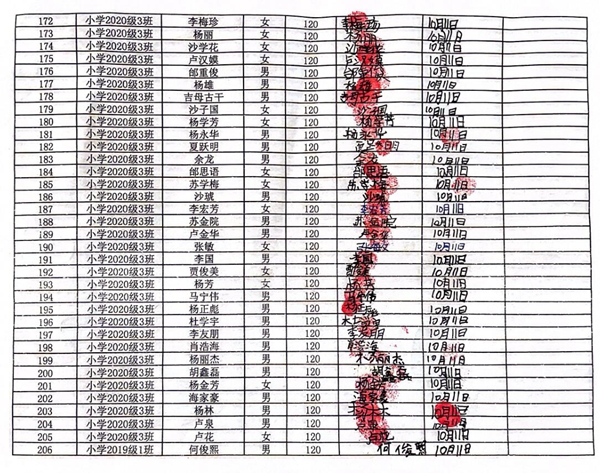 172 小学2020级3班 李梅珍 女 120 李梅珍 10月11日
173 小学2020级3班 杨丽 女 120 10月11日
174 小学2020级3班 沙学花 女 120 10月11日
175 小学2020级3班 卢汉嫫 女 120 10月11日
176 小学2020级3班 邰重俊 男 120 10月11日
177 小学2020级3班 杨雄 男 120 杨雄 10月11日
178 小学2020级3班 吉母古干 男 120 吉母古干 10月11日
179 小学2020级3班 沙子国 女 120 沙子国 10月11日
180 小学2020级3班 杨学芳 女 120 杨学芳 10月11日
181 小学2020级3班 杨永华 男 120 杨永华 10月11日
182 小学2020级3班 夏跃明 男 120 夏跃明 10月11日
183 小学2020级3班 余龙 男 120 余龙 10月11日
184 小学2020级3班 邰思语 女 120 邰思语 10月11日
185 小学2020级3班 苏学梅 女 120 苏学梅 10月11日
186 小学2020级3班 沙琥 男 120 沙琥 10月11日
187 小学2020级3班 李宏芳 女 120 李宏芳 10月11日
188 小学2020级3班 苏金院 男 120 苏金院 10月11日
189 小学2020级3班 卢金华 男 120 卢金华 10月11日
190 小学2020级3班 张敏 女 120 张敏 10月11日
191 小学2020级3班 李国 男 120 李国 10月11日
192 小学2020级3班 贾俊美 女 120 10月11日
193 小学2020级3班 杨芳 女 120 杨芳 10月11日
194 小学2020级3班 马宁伟 男 120 马宁伟 10月11日
195 小学2020级3班 杨正彪 男 120 10月11日
196 小学2020级3班 杜学宇 男 120 10月11日
197 小学2020级3班 李友朋 男 120 李友朋 10月11日
198 小学2020级3班 肖浩海 男 120 10月11日
199 小学2020级3班 杨丽杰 男 120 杨丽杰 10月11日
200 小学2020级3班 胡鑫磊 男 120 胡鑫磊 10月11日
201 小学2020级3班 杨金芳 女 120 10月11日
202 小学2020级3班 海家豪 男 120 海家豪 10月11日
203 小学2020级3班 杨林 男 120 杨林 10月11日
204 小学2020级3班 卢泉 男 120 10月11日
205 小学2020级3班 卢花 女 120 10月11日
206 小学2019级1班 何俊熙 男 120 何俊熙 10月11日